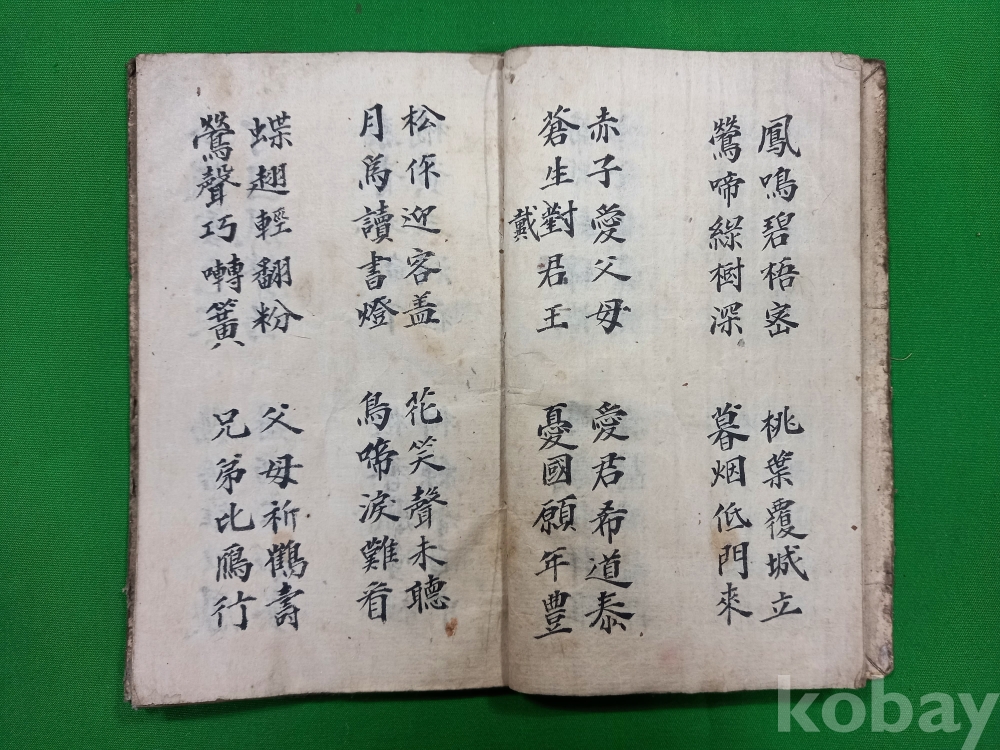 鳳鳴碧梧密
鶯啼綠樹深
桃葉覆城立
暮烟低門來
赤子愛父母
蒼生對君王
戴
愛君希道泰
憂國願年豊
松作迎客盖
月爲讀書燈
花笑聲未聽
鳥啼淚難看
蝶翅輕翻粉
鶯聲巧囀簧
父母祈鶴壽
兄弟比鴈行
kobay